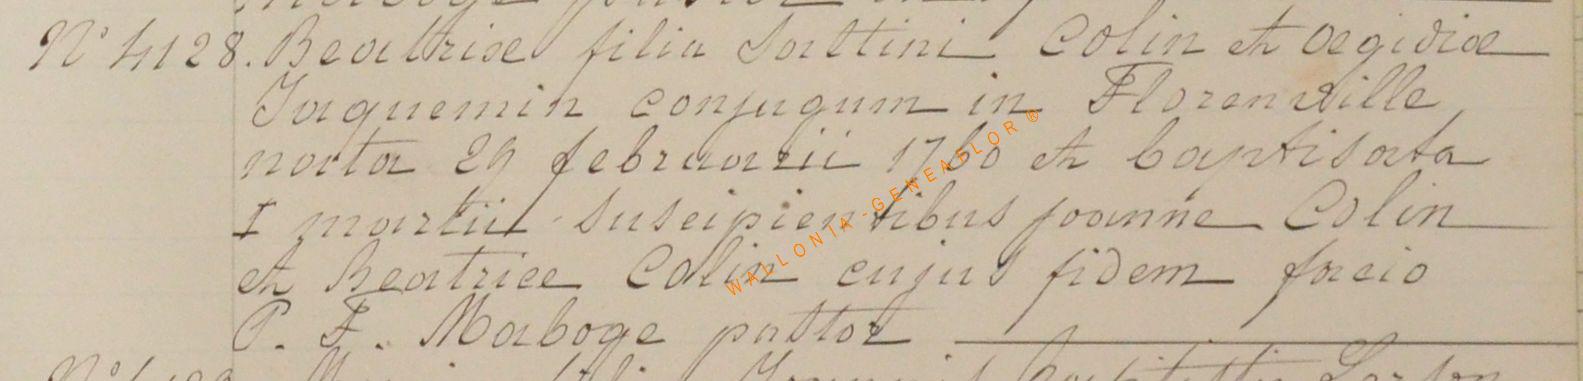 N° 4128. Beatrix filia Sattini Colin et Aegidiae
Jaquemin conjugum in Florenville
nata 29 februarii 1760 et baptisata
I martii suscipientibus joanne Colin
et Beatrice Colin cujus fidem facio
P. F. Maboge pastor
WALLONIA-GENEAFLOR ®